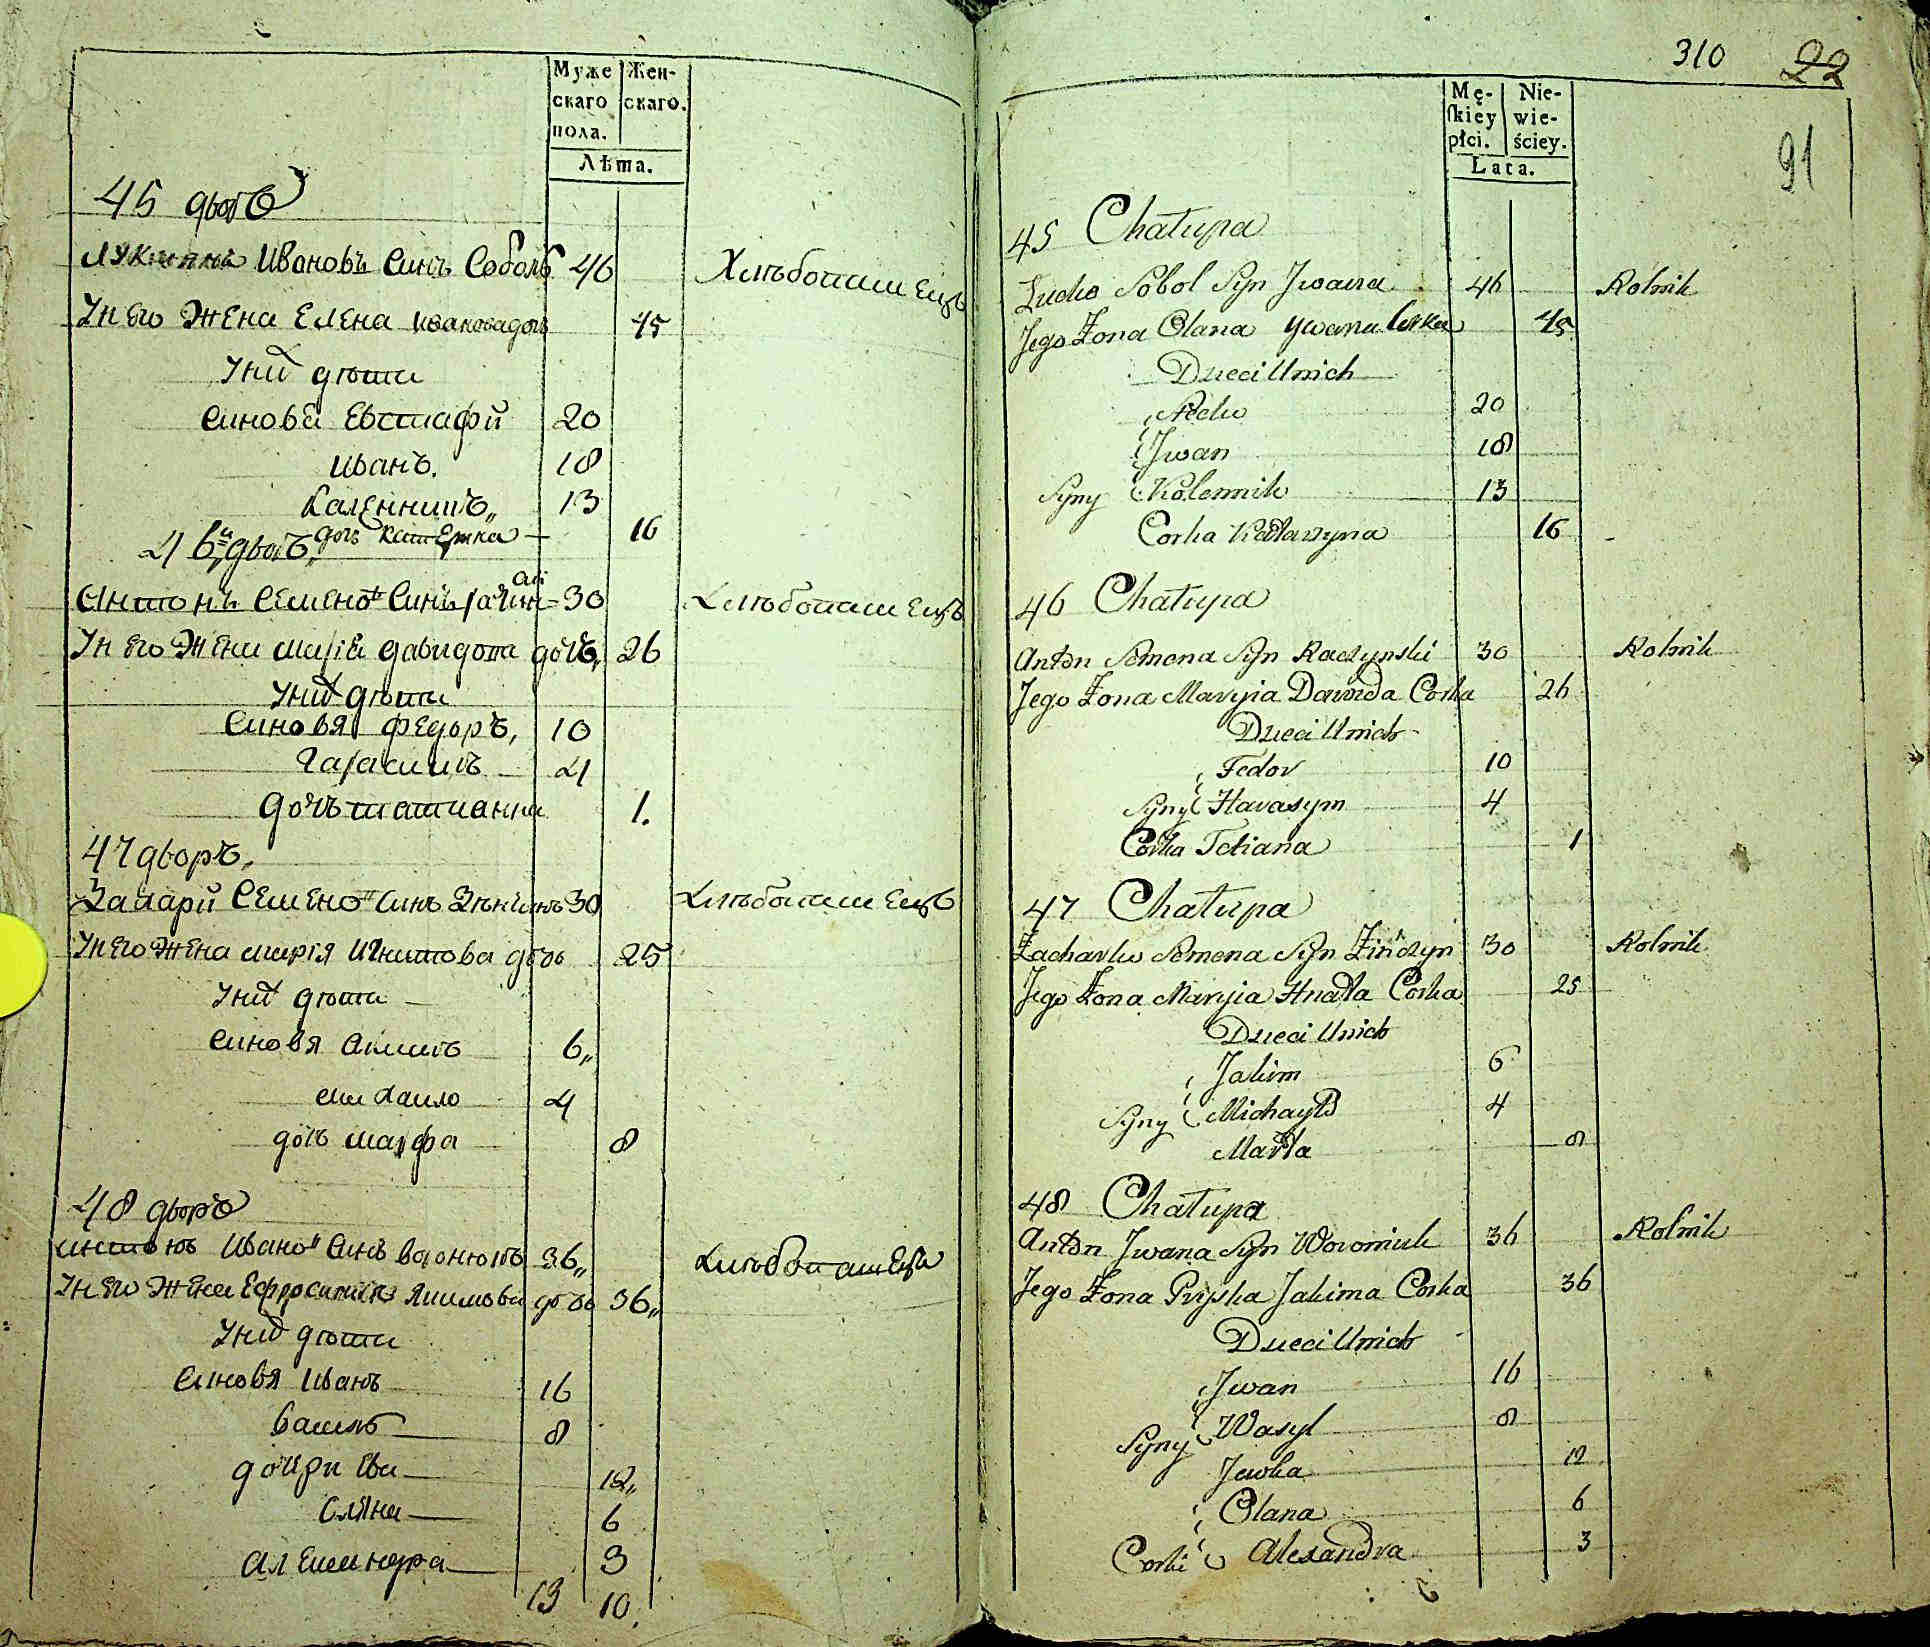 Муже Жен-
скаго скаго.
пола.
Лѣта.
45 дворъ
Лукиянъ Ивановъ Синъ Соболь 46 Хлѣбопашецъ
У него Жена Елена Иванова дочь 45
У них дѣти
Синовя Евстафи 20
Иванъ. 18
Каленникъ 13
дочь Катерина 16
46 дворъ
Антонъ Семенов Синъ 30 Хлѣбопашецъ
У него Жена Мария Давидова дочь 26
У них дѣти
Синовя Федоръ, 10
Гарасимъ 4
Дочь Татианна 1.
47 дворъ,
Захари Семенов Синъ Зѣнчинъ 30 Хлѣбопашецъ
У него Жена Мария Игнатова дочь 25
У них дѣти
Синовя Акимъ 6
Михаило 4
дочь Марфа 8
48 дворъ
Антонъ Иванов Синъ Воронюкъ 36 Хлѣбопашецъ
У него Жена Ефросиния Якимова дочь 36
У них дѣти
Синовя Иванъ 16
Василь 8
дочери Ева 12
Оляна 6
Александра 3
13 10
310 22
91
Mę- Nie-
skiey wie-
płci. ściey.
Lata.
45 Chałupa
Łucko Sobol Syn Jwana 46 Rolnik
Jego Żona Olana Ywana Corka 45
Dzieci Unich
20
Jwan 18
Syny Kolennik 13
Corka Katarzyna 16
46 Chałupa
Anton Semena Syn Raczynski 30 Rolnik
Jego Żona Maryia Dawida Corka 26
Dzieci Unich
Fedor 10
Syny Harasym 4
Corka Tetiana 1
47 Chałupa
Zacharko Semena Syn Zińczyn 30 Rolnik
Jego Żona Maryia Hnata Corka 25
Dzieci Unich
Jakim 6
Syny Michayło 4
Marta 8
48 Chałupa
Anton Jwana Syn Woroniuk 36 Rolnik
Jego Żona Pryska Jakima Corka 36
Dzieci Unich
Jwan 16
Syny Wasyl 8
Jewka 12
Olana 6
Corki Alexandra 3